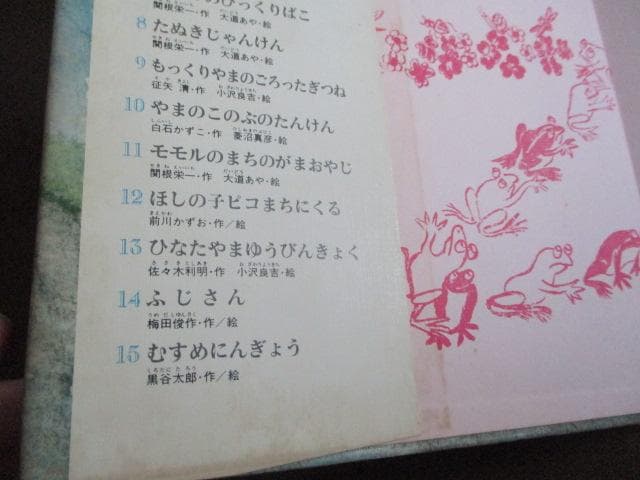 のびっくりばこ
関根栄一・作 大道あや・絵
8 たぬきじゃんけん
関根栄一・作 大道あや・絵
9 もっくりやまのごろったぎつね
征矢 清・作 小沢良吉・絵
10 やまのこのぶのたんけん
白石かずこ・作 菱沼真彦・絵
11 モモルのまちのがまおやじ
関根栄一・作 大道あや・絵
12 ほしの子ピコまちにくる
前川かずお・作/絵
13 ひなたやまゆうびんきょく
佐々木利明・作 小沢良吉・絵
14 ふじさん
梅田俊作・作/絵
15 むすめにんぎょう
黒谷太郎・作/絵